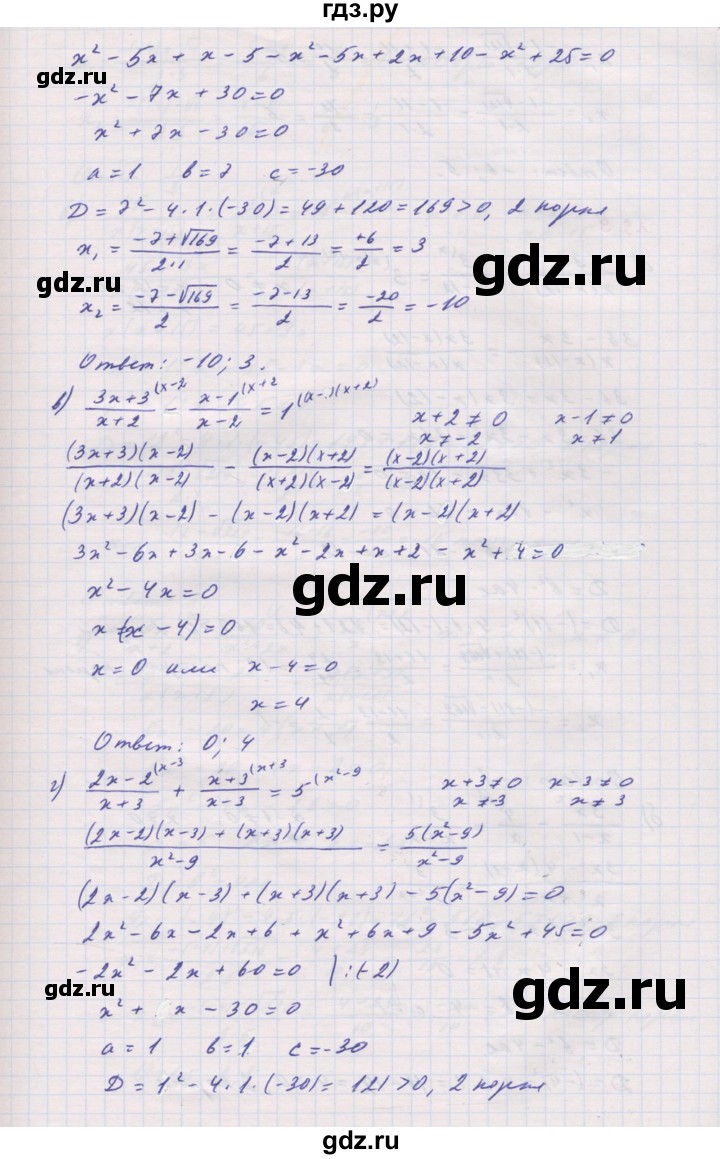 гдз.ру
x² - 5x + x - 5 - x² - 5x + 2x + 10 - x² + 25 = 0
-x² - 7x + 30 = 0
x² + 7x - 30 = 0
a = 1 b = 7 c = -30
D = 7² - 4·1·(-30) = 49 + 120 = 169 > 0, 2 корня
x₁ = (-7+√169)/(2·1) = (-7+13)/2 = +6/2 = 3
x₂ = (-7-√169)/2 = (-7-13)/2 = -20/2 = -10
Ответ: -10; 3.
в) (3x+3)/(x+2) ^(x-2 - (x-1)/(x-2) ^(x+2 = 1 ^(x-.)(x+2) x+2≠0 x-1≠0
x≠-2 x≠1
(3x+3)(x-2)/(x+2)(x-2) - (x-2)(x+2)/(x+2)(x-2) = (x-2)(x+2)/(x-2)(x+2)
(3x+3)(x-2) - (x-2)(x+2) = (x-2)(x+2)
3x² - 6x + 3x - 6 - x² - 2x + x + 2 - x² + 4 = 0
x² - 4x = 0
x(x - 4) = 0
x = 0 или x - 4 = 0
x = 4
Ответ: 0; 4
г) (2x-2)/(x+3) ^(x-3 + (x+3)/(x-3) ^(x+3 = 5 ^(x²-9 x+3≠0 x-3≠0
x≠-3 x≠3
((2x-2)(x-3) + (x+3)(x+3))/(x²-9) = 5(x²-9)/(x²-9)
(2x-2)(x-3) + (x+3)(x+3) - 5(x²-9) = 0
2x² - 6x - 2x + 6 + x² + 6x + 9 - 5x² + 45 = 0
-2x² - 2x + 60 = 0 |:(-2)
x² + x - 30 = 0
a = 1 b = 1 c = -30
D = 1² - 4·1·(-30) = 121 > 0, 2 корня
gdz.ru
gdz.ru
gdz.ru
gdz.ru